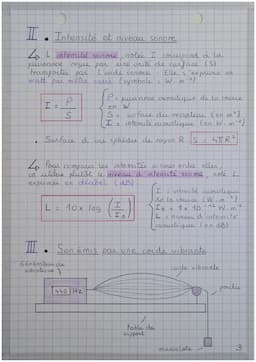 II. Intensité et niveau sonore
L'intensité sonore, notée I correspond à la
puissance reçue par une unité de surface (S)
transportée par l'onde sonore. Elle s'exprime en
watt par mètre carré (symbole : W.m⁻²)
I = P/S
P = puissance acoustique de la source
en W
S = surface du récepteur (en m²)
I = intensité acoustique (en W.m⁻²)
• Surface d'une sphère de rayon R S = 4πR²
Pour comparer les intensités sonores entre elles,
on utilise plutôt le niveau d'intensité sonore, noté L
exprimé en décibel (dB)
L = 10 × log (I/I₀)
I = intensité acoustique
de la source (W.m⁻²)
I₀ = 1 × 10⁻¹² W.m⁻²
L = niveau d'intensité
acoustique (en dB)
III. Son émis par une corde vibrante
Générateur de
vibrations
corde vibrante
440 Hz
poulie
Table de
support
3